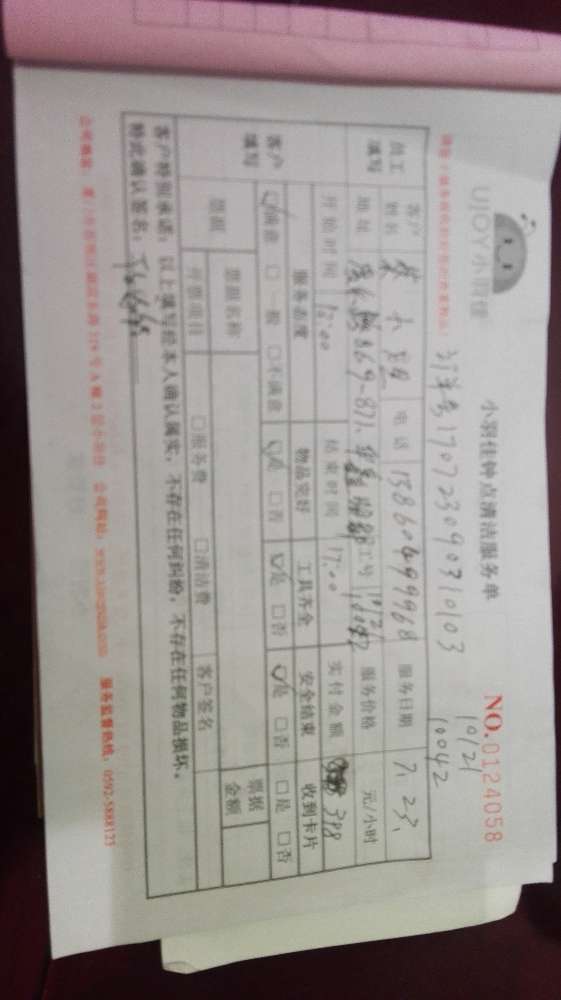 UJOY小羽佳
小羽佳钟点清洁服务单
NO.0124058
订单号170723090310103
10121
10042
员工填写
客户姓名
电话 13860499968
服务日期 7.23.
地址
869-871
工号 10121 10042
服务价格 元/小时
开始时间 12:00
结束时间 17:00
实付金额 398
客户填写
服务态度
物品完好
工具齐全
安全结束
收到卡片
☑满意 □一般 □不满意
☑是 □否
☑是 □否
☑是 □否
□是 □否
票据
票据名称
票据金额
开票项目
□服务费 □清洁费
客户签名
客户特别承诺:以上填写经本人确认属实,不存在任何纠纷,不存在任何物品损坏。
特此确认签名:
服务监督热线:0592-5888123